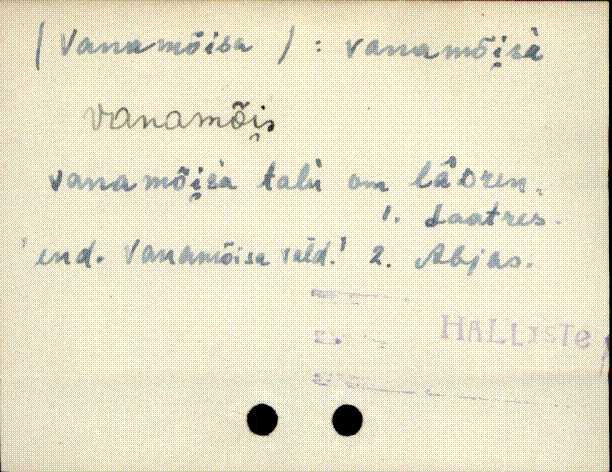 (Vanamõisa) : vanamõi̭sà
vanamõi̭s
vanamõi̭sa talù om lâDren.
1. Laatres.
'end. Vanamõisa vald.' 2. Abjas.
HALLISTE